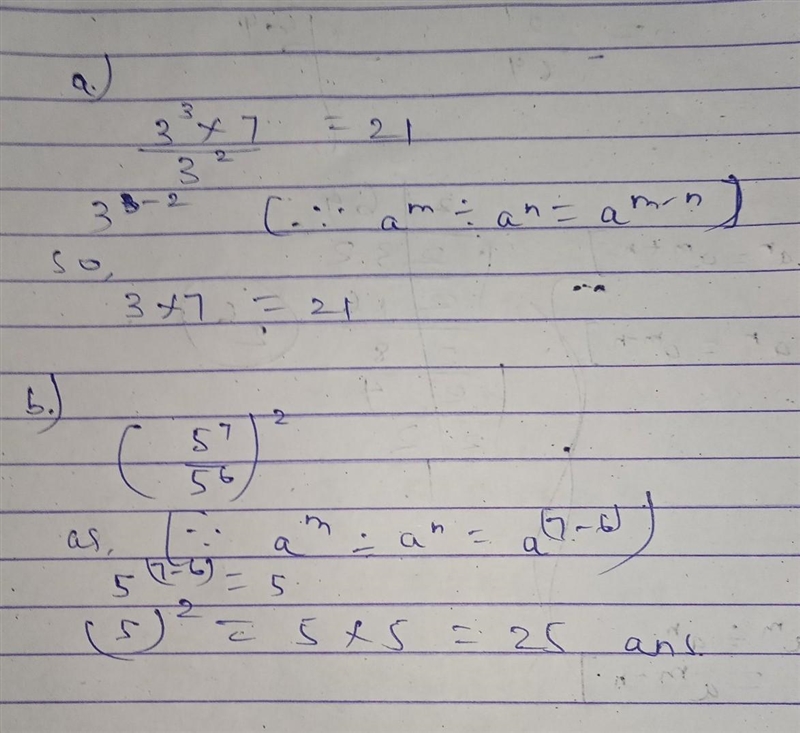 a.)
3³ × 7 = 21
3²
3³⁻² (∵ aᵐ ÷ aⁿ = aᵐ⁻ⁿ)
so,
3 × 7 = 21
b.)
(5⁷/5⁶)²
as, (∵ aᵐ ÷ aⁿ = a⁽⁷⁻⁶⁾)
5⁽⁷⁻⁶⁾ = 5
(5)² = 5 × 5 = 25 ans.